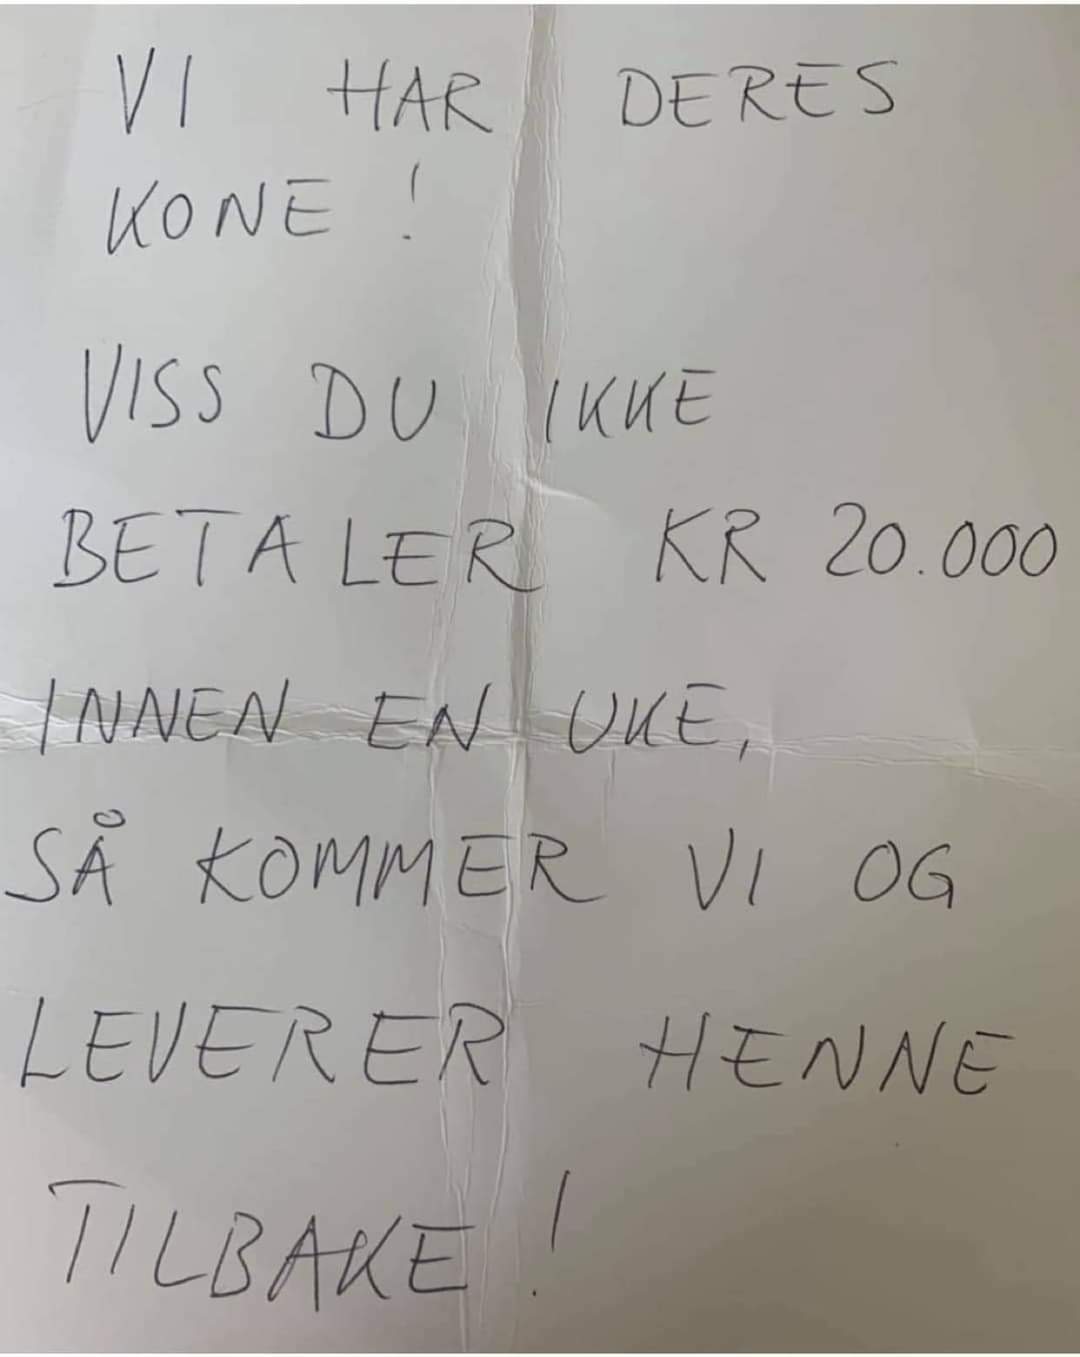 VI HAR DERES
KONE!
VISS DU IKKE
BETALER KR 20.000
INNEN EN UKE,
SÅ KOMMER VI OG
LEVERER HENNE
TILBAKE!